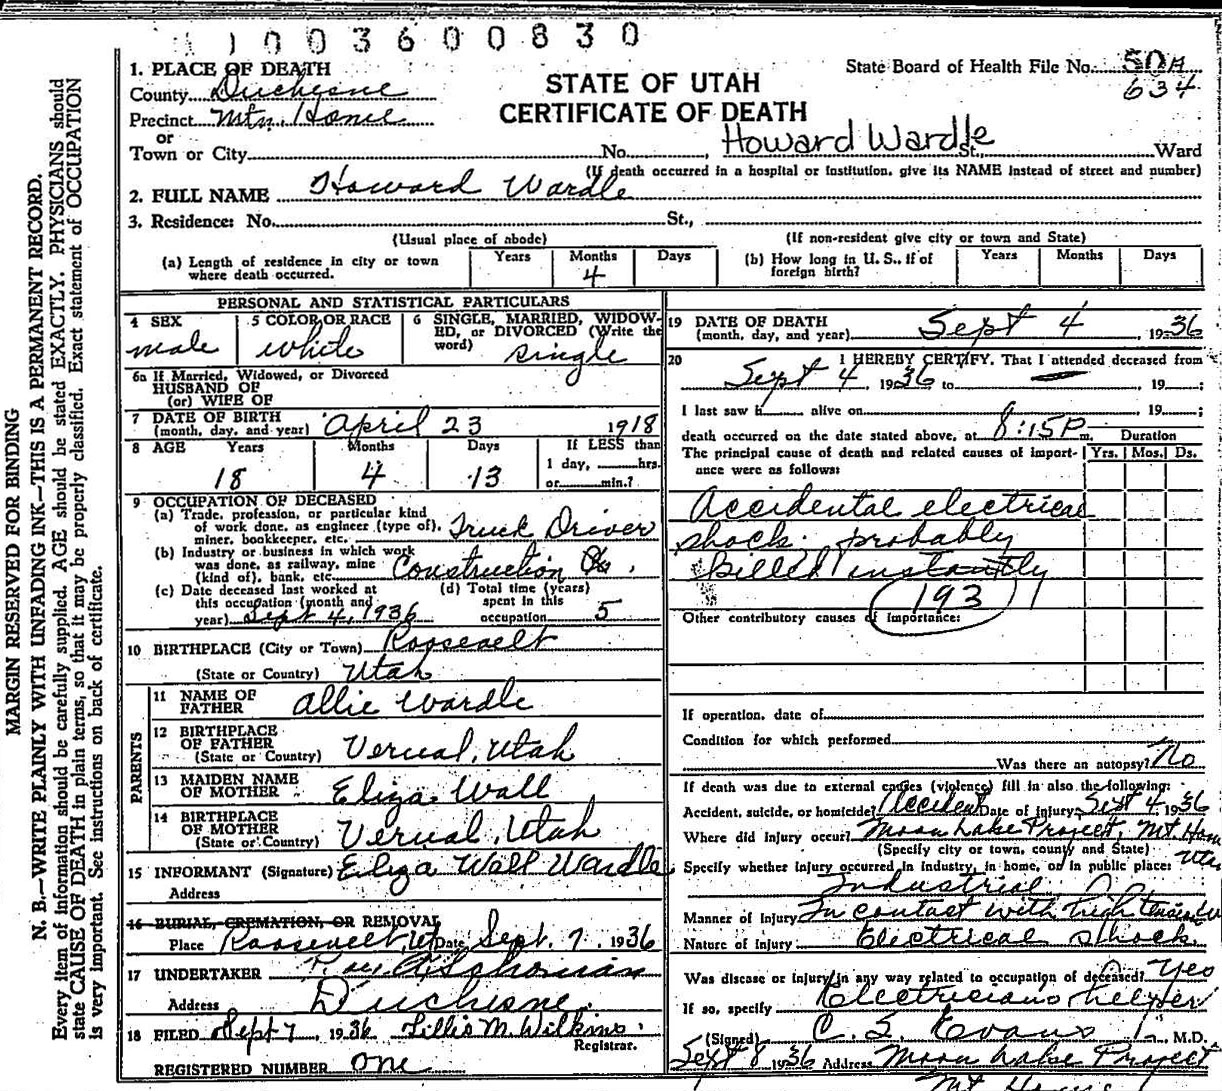 1003600830
STATE OF UTAH
CERTIFICATE OF DEATH
State Board of Health File No. 50A
634
1. PLACE OF DEATH
County Duchesne
Precinct Mtn. Home
or
Town or City No. Howard Wardle St., Ward
(If death occurred in a hospital or institution, give its NAME instead of street and number)
2. FULL NAME Howard Wardle
3. Residence: No. St.,
(Usual place of abode) (If non-resident give city or town and State)
(a) Length of residence in city or town where death occurred. Years Months 4 Days
(b) How long in U. S., if of foreign birth? Years Months Days
PERSONAL AND STATISTICAL PARTICULARS
4 SEX male
5 COLOR OR RACE white
6 SINGLE, MARRIED, WIDOWED, or DIVORCED (Write the word) single
6a If Married, Widowed, or Divorced
HUSBAND OF
(or) WIFE OF
7 DATE OF BIRTH
(month, day, and year) April 23 1918
8 AGE Years 18 Months 4 Days 13 If LESS than
1 day, hrs.
or min.?
9 OCCUPATION OF DECEASED
(a) Trade, profession, or particular kind
of work done, as engineer (type of),
miner, bookkeeper, etc. Truck Driver
(b) Industry or business in which work
was done, as railway, mine
(kind of), bank, etc. Construction Co.
(c) Date deceased last worked at
this occupation (month and
year) Sept 4, 1936
(d) Total time (years)
spent in this
occupation 5
10 BIRTHPLACE (City or Town) Roosevelt
(State or Country) Utah
PARENTS
11 NAME OF FATHER Allie Wardle
12 BIRTHPLACE OF FATHER
(State or Country) Vernal, Utah
13 MAIDEN NAME OF MOTHER Eliza Wall
14 BIRTHPLACE OF MOTHER
(State or Country) Vernal, Utah
15 INFORMANT (Signature) Eliza Wall Wardle
Address
16 BURIAL, CREMATION, OR REMOVAL
Place Roosevelt, Ut Date Sept. 7, 1936
17 UNDERTAKER
Address Duchesne.
18 FILED Sept 7, 1936 Lillie M. Wilkins.
Registrar.
REGISTERED NUMBER One
19 DATE OF DEATH
(month, day, and year) Sept 4, 1936
20 I HEREBY CERTIFY, That I attended deceased from
Sept 4 1936 to , 19 ;
I last saw h alive on , 19 ;
death occurred on the date stated above, at 8:15 P m. Duration
The principal cause of death and related causes of importance were as follows: Yrs. Mos. Ds.
Accidental electrical
shock. probably
killed instantly
193
Other contributory causes of importance:
If operation, date of
Condition for which performed
Was there an autopsy? No
If death was due to external causes (violence) fill in also the following:
Accident, suicide, or homicide? Accident Date of injury Sept 4 1936
Where did injury occur? Moon Lake Project, Mt. Home
(Specify city or town, county and State) Utah
Specify whether injury occurred in industry, in home, or in public place:
Industrial
Manner of injury In contact with high tension
Nature of Injury Electrical shock.
Was disease or injury in any way related to occupation of deceased? Yes
If so, specify Electricians helper
(Signed) C. S. Evans, M.D.
Sept 8 1936 Address Moon Lake Project
Mt Home
MARGIN RESERVED FOR BINDING
N. B.—WRITE PLAINLY WITH UNFADING INK—THIS IS A PERMANENT RECORD.
Every item of information should be carefully supplied. AGE should be stated EXACTLY. PHYSICIANS should
state CAUSE OF DEATH in plain terms, so that it may be properly classified. Exact statement of OCCUPATION
is very important. See instructions on back of certificate.